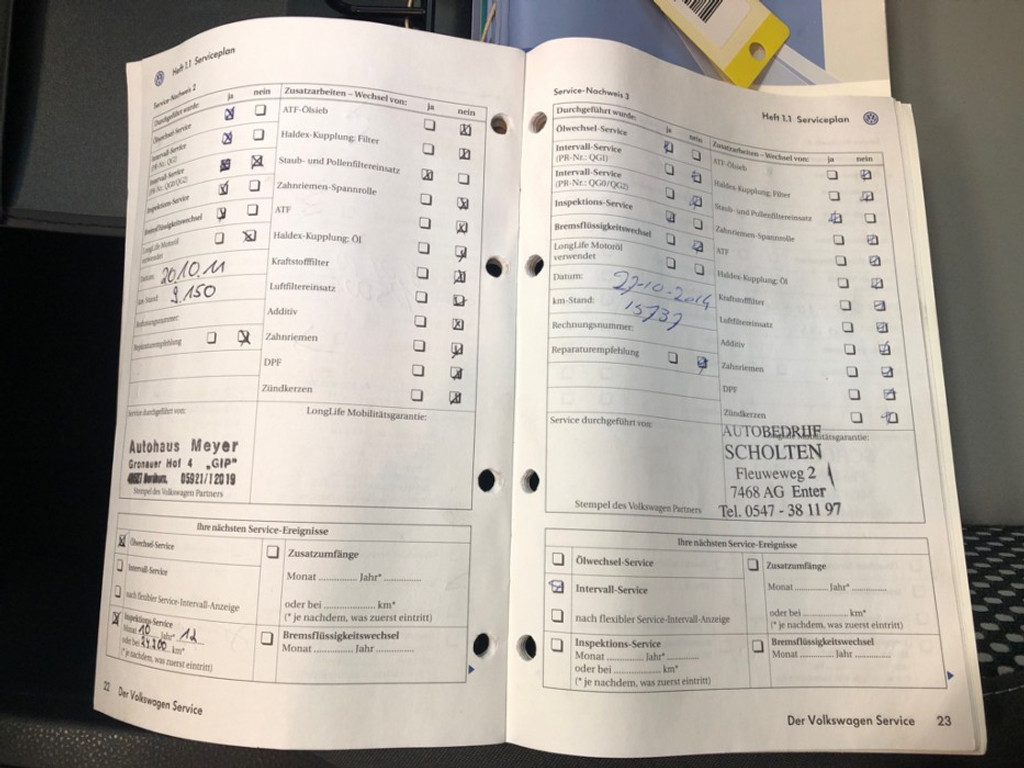 Heft 1.1 Serviceplan
Service-Nachweis 2
Durchgeführt wurde: ja nein
Ölwechsel-Service
Intervall-Service
(PR-Nr.: QG1)
Intervall-Service
(PR-Nr.: QG0/QG2)
Inspektions-Service
Bremsflüssigkeitswechsel
LongLife Motoröl
verwendet
Datum: 20.10.11
km-Stand: 9.150
Rechnungsnummer:
Reparaturempfehlung
Zusatzarbeiten – Wechsel von: ja nein
ATF-Ölsieb
Haldex-Kupplung: Filter
Staub- und Pollenfiltereinsatz
Zahnriemen-Spannrolle
ATF
Haldex-Kupplung: Öl
Kraftstofffilter
Luftfiltereinsatz
Additiv
Zahnriemen
DPF
Zündkerzen
Service durchgeführt von:
LongLife Mobilitätsgarantie:
Autohaus Meyer
Gronauer Hof 4 „GIP"
05921/12019
Stempel des Volkswagen Partners
Ihre nächsten Service-Ereignisse
Ölwechsel-Service
Intervall-Service
nach flexibler Service-Intervall-Anzeige
Inspektions-Service
Monat 10 Jahr* 12
oder bei km*
(* je nachdem, was zuerst eintritt)
Zusatzumfänge
Monat ............. Jahr* .............
oder bei ......................... km*
(* je nachdem, was zuerst eintritt)
Bremsflüssigkeitswechsel
Monat ............. Jahr .............
22 Der Volkswagen Service
Heft 1.1 Serviceplan
Service-Nachweis 3
Durchgeführt wurde: ja nein
Ölwechsel-Service
Intervall-Service
(PR-Nr.: QG1)
Intervall-Service
(PR-Nr.: QG0/QG2)
Inspektions-Service
Bremsflüssigkeitswechsel
LongLife Motoröl
verwendet
Datum: 27-10-2014
km-Stand: 15737
Rechnungsnummer:
Reparaturempfehlung
Zusatzarbeiten – Wechsel von: ja nein
ATF-Ölsieb
Haldex-Kupplung: Filter
Staub- und Pollenfiltereinsatz
Zahnriemen-Spannrolle
ATF
Haldex-Kupplung: Öl
Kraftstofffilter
Luftfiltereinsatz
Additiv
Zahnriemen
DPF
Zündkerzen
Service durchgeführt von:
LongLife Mobilitätsgarantie:
AUTOBEDRIJF
SCHOLTEN
Fleuweweg 2
7468 AG Enter
Tel. 0547 - 38 11 97
Stempel des Volkswagen Partners
Ihre nächsten Service-Ereignisse
Ölwechsel-Service
Intervall-Service
nach flexibler Service-Intervall-Anzeige
Inspektions-Service
Monat ............. Jahr* .............
oder bei ......................... km*
(* je nachdem, was zuerst eintritt)
Zusatzumfänge
Monat ............. Jahr* .............
oder bei ......................... km*
(* je nachdem, was zuerst eintritt)
Bremsflüssigkeitswechsel
Monat ............. Jahr .............
Der Volkswagen Service 23